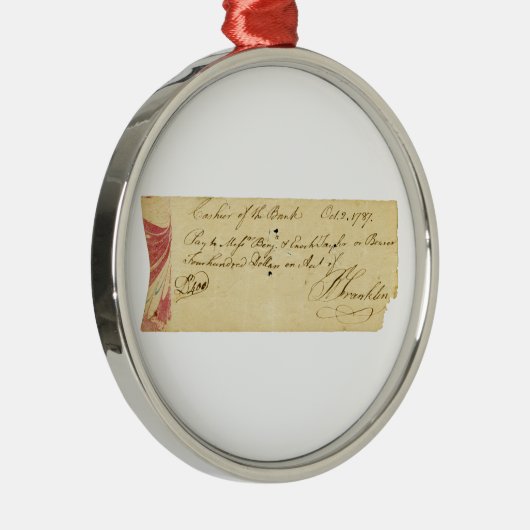 Cashier of the Bank Oct. 2. 1787.
Pay to Messrs. Benj. & Enoch Taylor or Bearer
Four hundred Dollars on Acct of
Ds 400
B Franklin